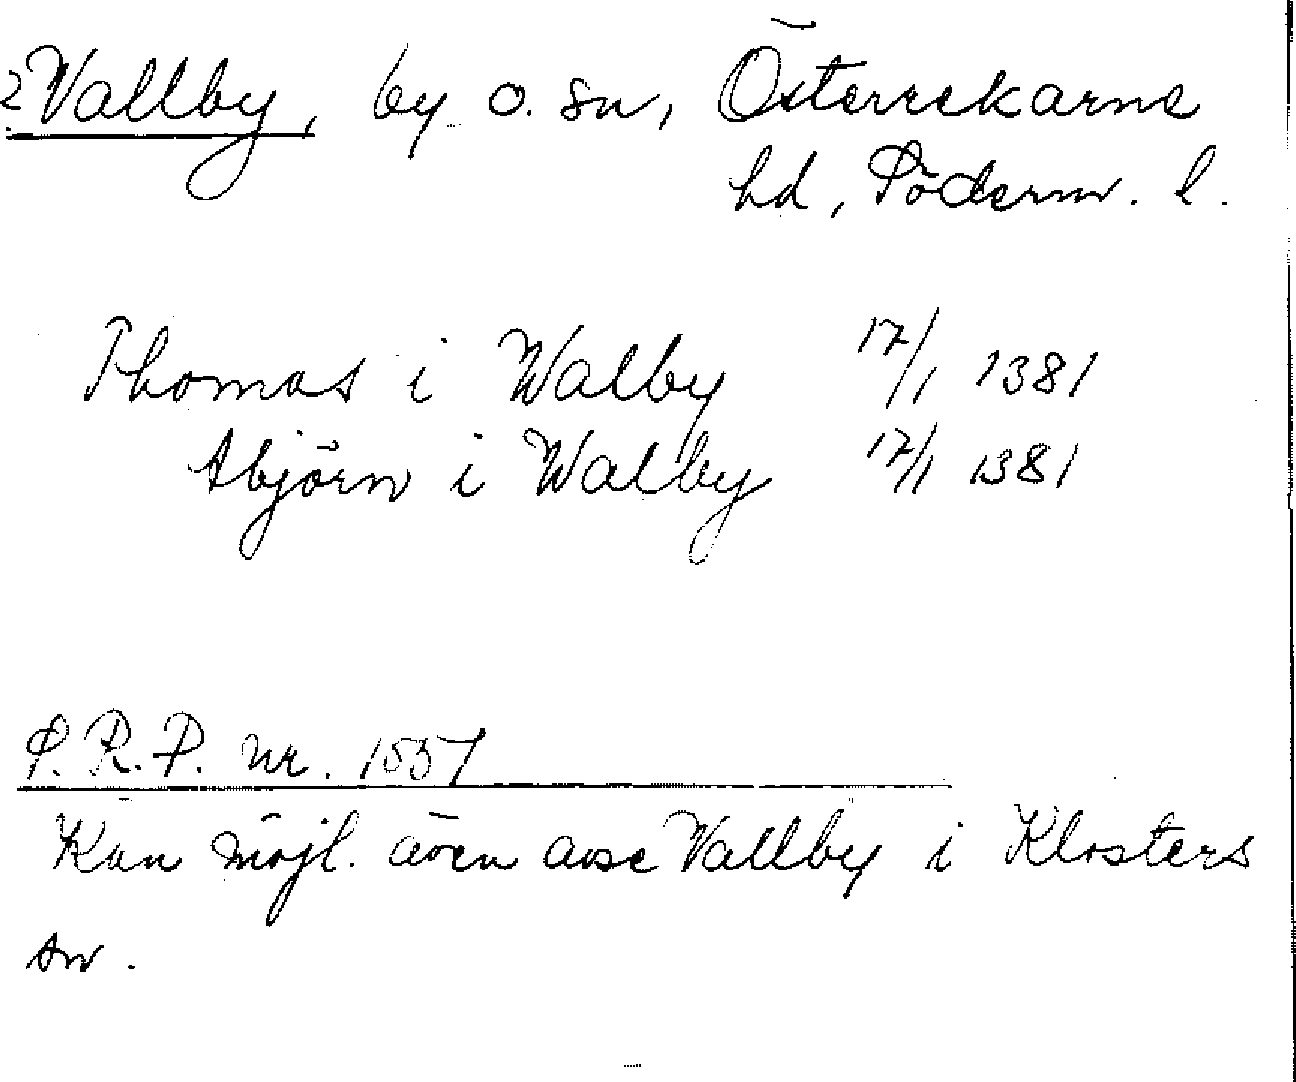 2 Vallby, by o. sn, Österrekarne
hd, Söderm. l.
Thomas i Walby 17/1 1381
Abjörn i Walby 17/1 1381
S. R. P. nr. 1557
Kan möjl. även avse Vallby i Klosters
sn.